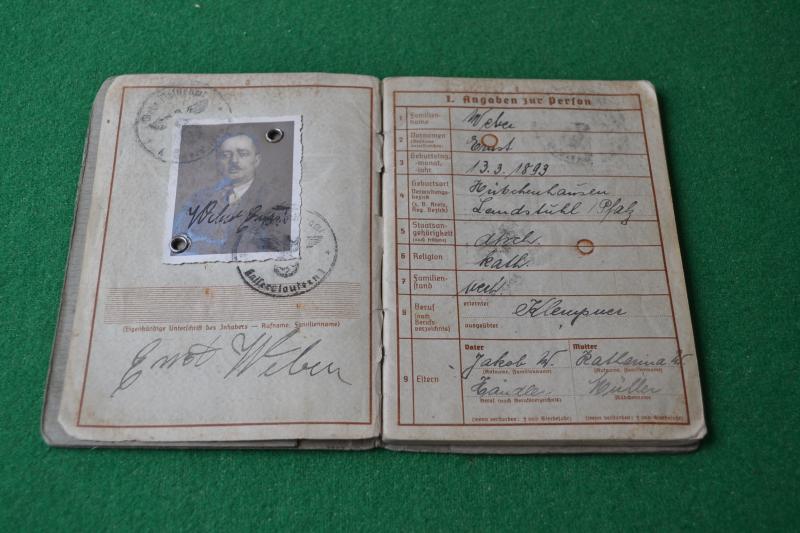 Kaiserslautern 1
(Eigenhändige Unterschrift des Inhabers — Rufname, Familienname)
Ernst Weber
I. Angaben zur Person
1 Familien-
name
Weber
2 Vornamen
Ernst
3 Geburtstag,
-monat,
-jahr
13.3.1893
4 Geburtsort
Verwaltungs-
bezirk
(z. B. Kreis,
Reg. Bezirk)
Hütschenhausen
Landstuhl / Pfalz
5 Staatsan-
gehörigkeit
(auch frühere)
dtsch.
6 Religion
kath.
7 Familien-
stand
verh.
8 Beruf
(nach
Berufs-
verzeichnis)
erlernter
Klempner
ausgeübter
9 Eltern
Vater
Jakob W.
(Rufname, Familienname)
Händler
Beruf (nach Berufsverzeichnis)
(wenn verstorben: † und Sterbejahr)
Mutter
Katharina W
(Rufname, Familienname)
Müller
Mädchenname
(wenn verstorben: † und Sterbejahr)